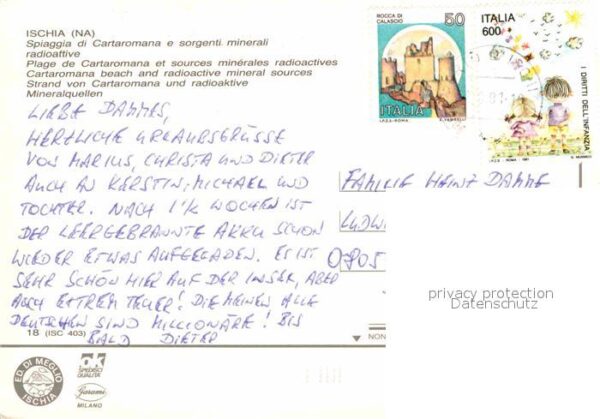 ISCHIA (NA)
Spiaggia di Cartaromana e sorgenti minerali
radioattive
Plage de Cartaromana et sources minérales radioactives
Cartaromana beach and radioactive mineral sources
Strand von Cartaromana und radioaktive
Mineralquellen
LIEBE DAMMES,
HERZLICHE URLAUBSGRÜSSE
VON MARIUS, CHRISTA UND DIETER
AUCH AN KERSTIN, MICHAEL UND
TOCHTER. NACH 1 1/2 WOCHEN IST
DER LEERGEBRANNTE AKKU SCHON
WIEDER ETWAS AUFGELADEN. ES IST
SEHR SCHÖN HIER AUF DER INSEL, ABER
AUCH EXTREM TEUER! DIE MEINEN ALLE
DEUTSCHEN SIND MILLIONÄRE! BIS
BALD DIETER
18 (ISC 403)
ED. DI MEGLIO
ISCHIA
OK
QUALITA'
Garami
MILANO
ROCCA DI
CALASCIO
50
ITALIA
I.P.Z.S.-ROMA
ITALIA
600
I DIRITTI DELL'INFANZIA
FAMILIE HEINZ DAMME
LUDWI
0-805
NON
privacy protection
Datenschutz